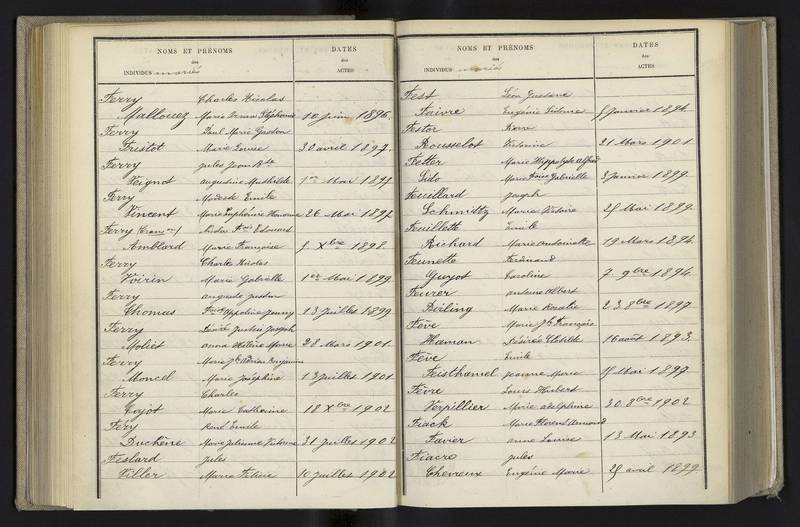 NOMS ET PRÉNOMS
des
INDIVIDUS mariés
DATES
des
ACTES
Ferry Charles Nicolas
Mallouez Marie Stéphanie 10 Juin 1896.
Ferry Paul Marie Gaston
Tristot Marie Louise 30 avril 1897.
Ferry Jules Jean Bte
Voignot augustine Mathilde 1er Mai 1897
Ferry Modeste Emile
Vincent Marie 26 Mai 1897
Ferry Nicolas Edouard
Amblard Marie Françoise 5 Xbre 1898.
Ferry Charles Nicolas
Voirin Marie Gabrielle 1er Mai 1899
Ferry auguste Justin
Thomas Appoline Jenny 13 Juillet 1899
Ferry Justin Joseph
Moliet anna Hélène Marie 28 Mars 1901.
Ferry Marie Jh Adrien Benjamin
Moncel Marie Joséphine 13 Juillet 1901
Ferry Charles
Gojot Marie Catherine 18 Xbre 1902
Féry René Emile
Duchêne Marie Julienne 31 Juillet 1902
Feslard Jules
Viller Marie 10 Juillet 1902
NOMS ET PRÉNOMS
des
INDIVIDUS mariés
DATES
des
ACTES
Fest Léon Gustave
Faivre Eugénie 5 Janvier 1894
Festor
Rousselot Victorine 21 Mars 1901.
Fetter Marie Hippolyte Alfred
Sido Marie Gabrielle 3 Janvier 1899.
Feuillard Joseph
Schmittz Marie Victoire 25 Mai 1899.
Feuillette Emile
Richard Marie antoinette 19 Mars 1894.
Feunette Ferdinand
Guyot Caroline 7 9bre 1894.
Feurer antoine albert
Birling Marie Rosalie 23 8bre 1897
Fève Marie Jh François
Haman Désirée Clotilde 16 août 1893.
Fève Emile
Feisthamel Jeanne Marie 15 Mai 1897
Fèvre Louis Hubert
Verpillier Marie adelphine 30 8bre 1902
Fiack Marie Florent Armand
Favier anne Louise 13 Mai 1893
Fiacre Jules
Chevreux Eugénie Marie 25 avril 1899.